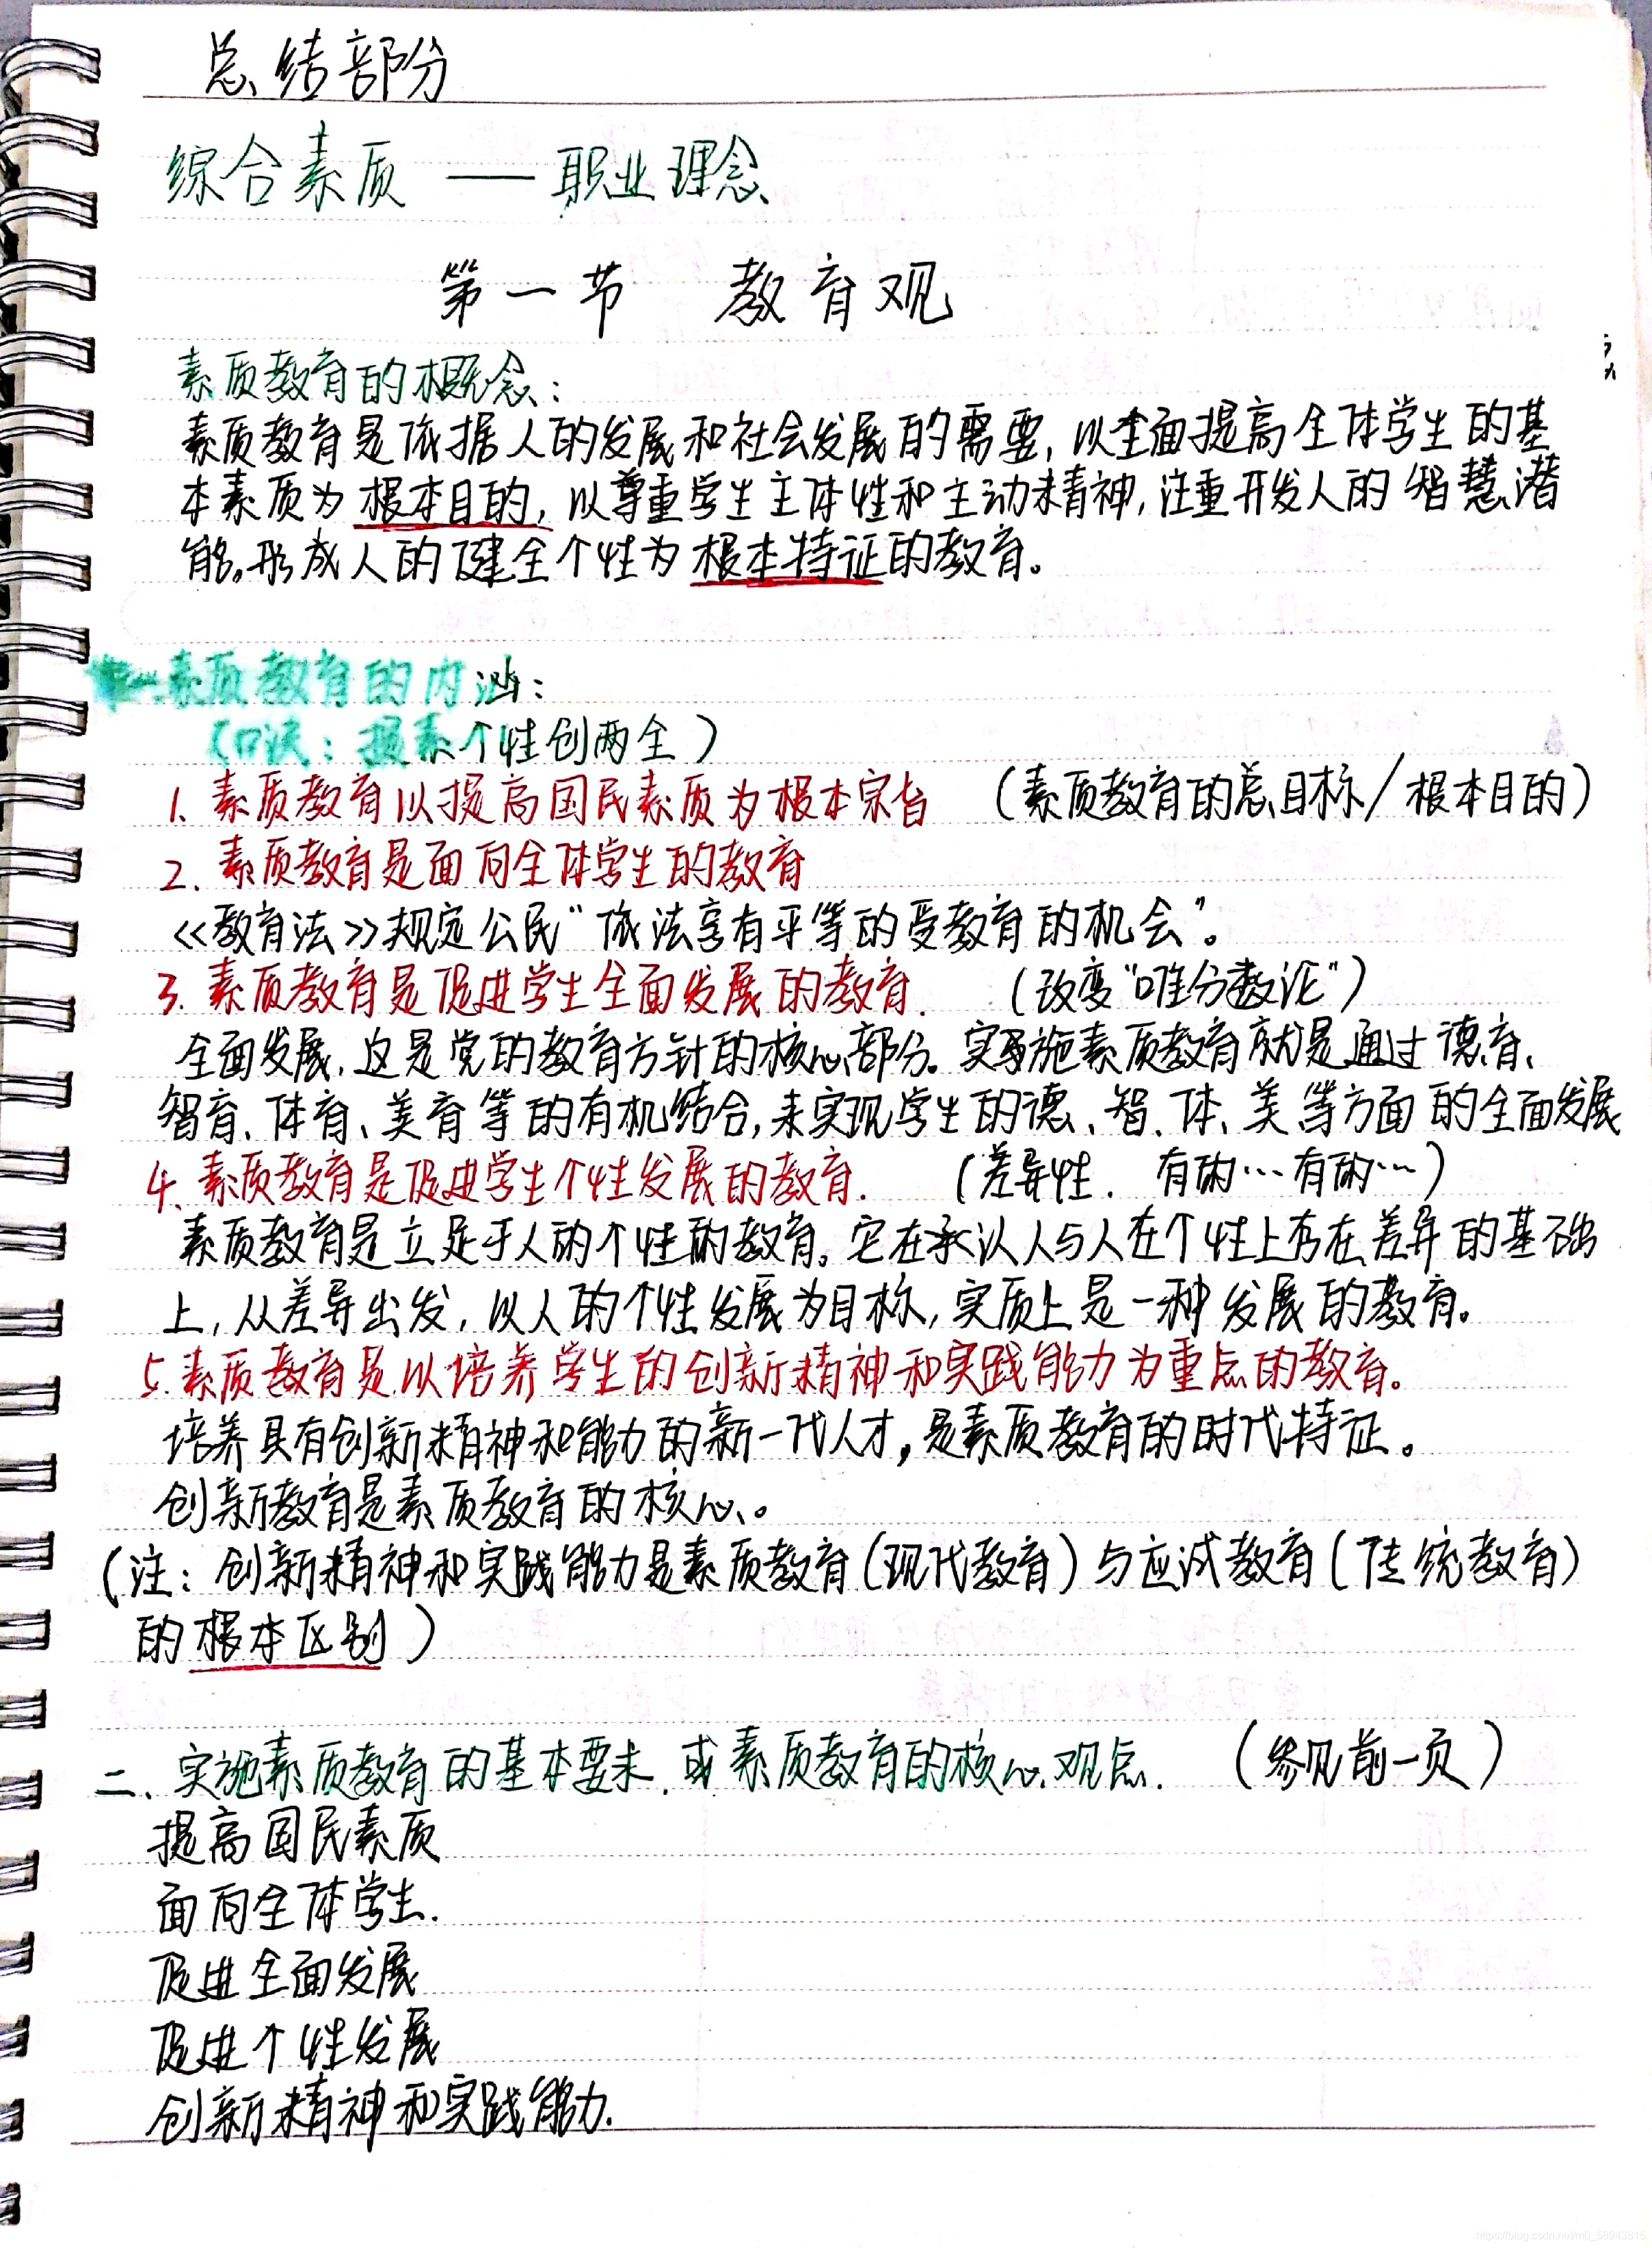 总结部分
综合素质 —— 职业理念
第一节 教育观
素质教育的概念：
素质教育是依据人的发展和社会发展的需要, 以全面提高全体学生的基
本素质为根本目的, 以尊重学生主体性和主动精神, 注重开发人的智慧潜
能。形成人的健全个性为根本特征的教育。
一.素质教育的内涵：
（口诀：提素个性创两全）
1. 素质教育以提高国民素质为根本宗旨 （素质教育的总目标/根本目的）
2. 素质教育是面向全体学生的教育
《教育法》规定公民“依法享有平等的受教育的机会”。
3. 素质教育是促进学生全面发展的教育. （改变“唯分数论”）
全面发展, 这是党的教育方针的核心部分。实施素质教育就是通过德育、
智育、体育、美育等的有机结合, 来实现学生的德、智、体、美等方面的全面发展
4. 素质教育是促进学生个性发展的教育. （差异性. 有的…有的…）
素质教育是立足于人的个性的教育。它在承认人与人在个性上存在差异的基础
上, 从差异出发, 以人的个性发展为目标, 实质上是一种发展的教育。
5. 素质教育是以培养学生的创新精神和实践能力为重点的教育。
培养具有创新精神和能力的新一代人才, 是素质教育的时代特征。
创新教育是素质教育的核心。
（注：创新精神和实践能力是素质教育（现代教育）与应试教育（传统教育）
的根本区别）
二、实施素质教育的基本要求. 或素质教育的核心观点. （参见前一页）
提高国民素质
面向全体学生.
促进全面发展
促进个性发展
创新精神和实践能力.
https://blog.csdn.net/m0_58943815